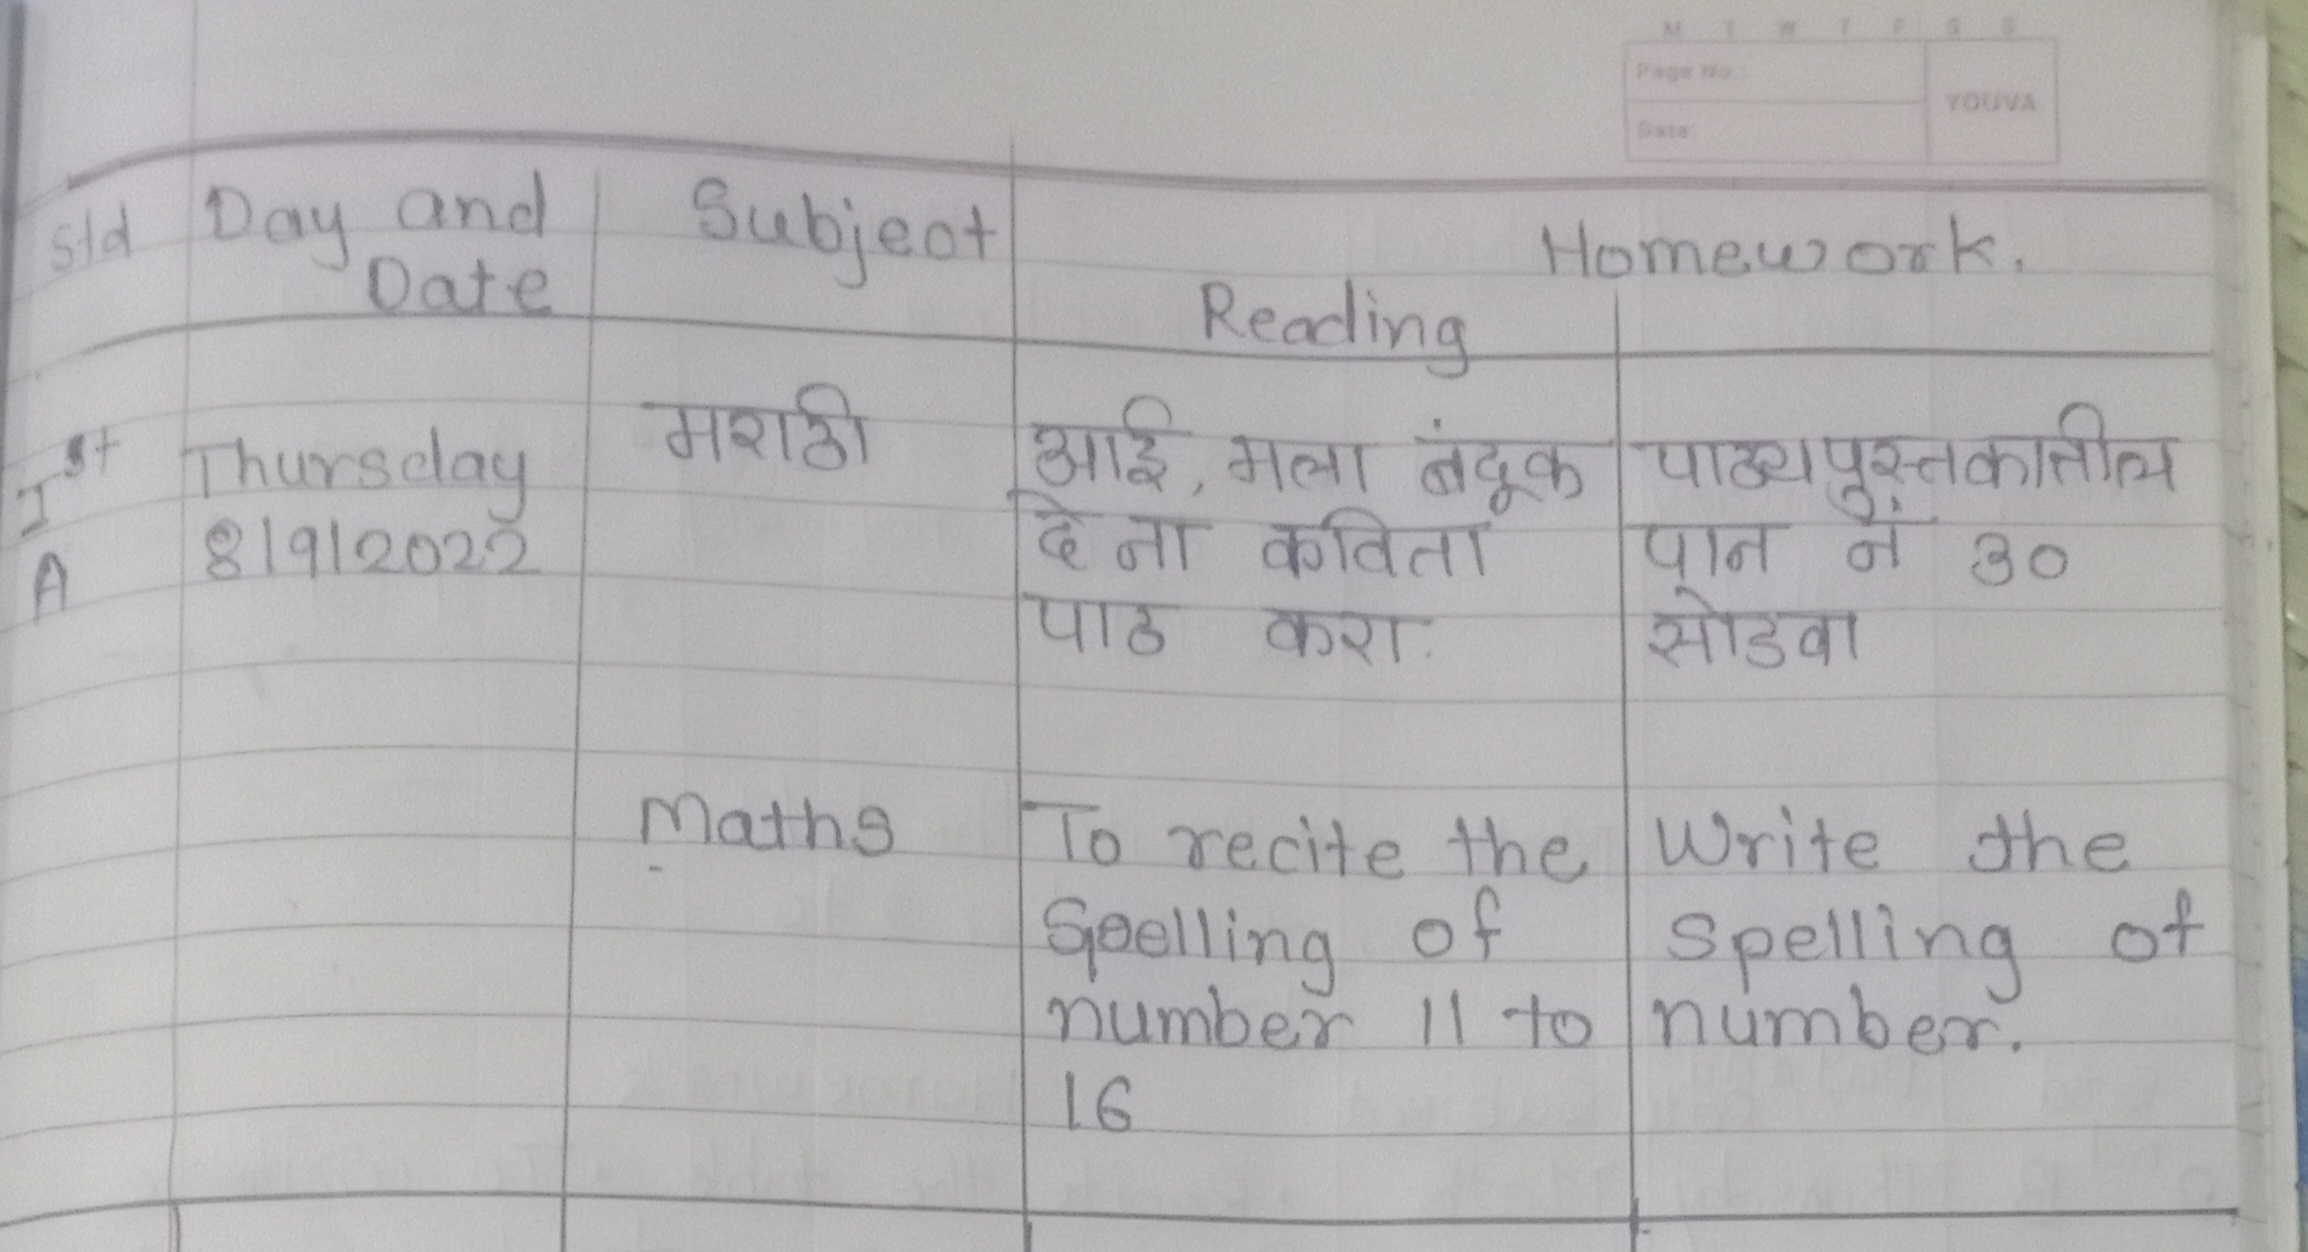 M T W T F S S
Page No.:
YOUVA
Date:
Std
Day and
Date
Subject
Homework.
Reading
Ist
A
Thursday
8/9/2022
मराठी
आई, मला बंदूक
दे ना कविता
पाठ करा.
पाठ्यपुस्तकातील
पान नं 30
सोडवा
Maths
To recite the
Spelling of
number 11 to
16
Write the
spelling of
number.